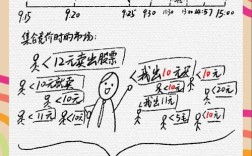 9:15 9:20 9:25 9:30 11:30 13:00 14:57 15:00
集合竞价时的市场:
<12元卖出股票
<10元就卖
<10元
<11元
<10元
<我出10元买
我出11元
<10元
<20元
<5元
<10元